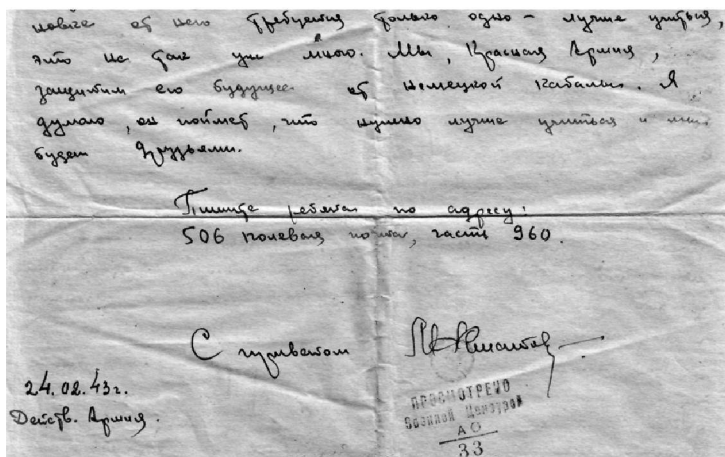 от него требуется только одно – лучше учиться,
это не так уж много. Мы, Красная Армия,
защитим его будущее от немецкой кабалы. Я
думаю, он поймет, что нужно лучше учиться и мы
будем друзьями.
Пишите ребята по адресу:
506 полевая почта, часть 960.
С приветом
24.02.43г.
Действ. Армия.
ПРОСМОТРЕНО
Военной Цензурой
АО
33